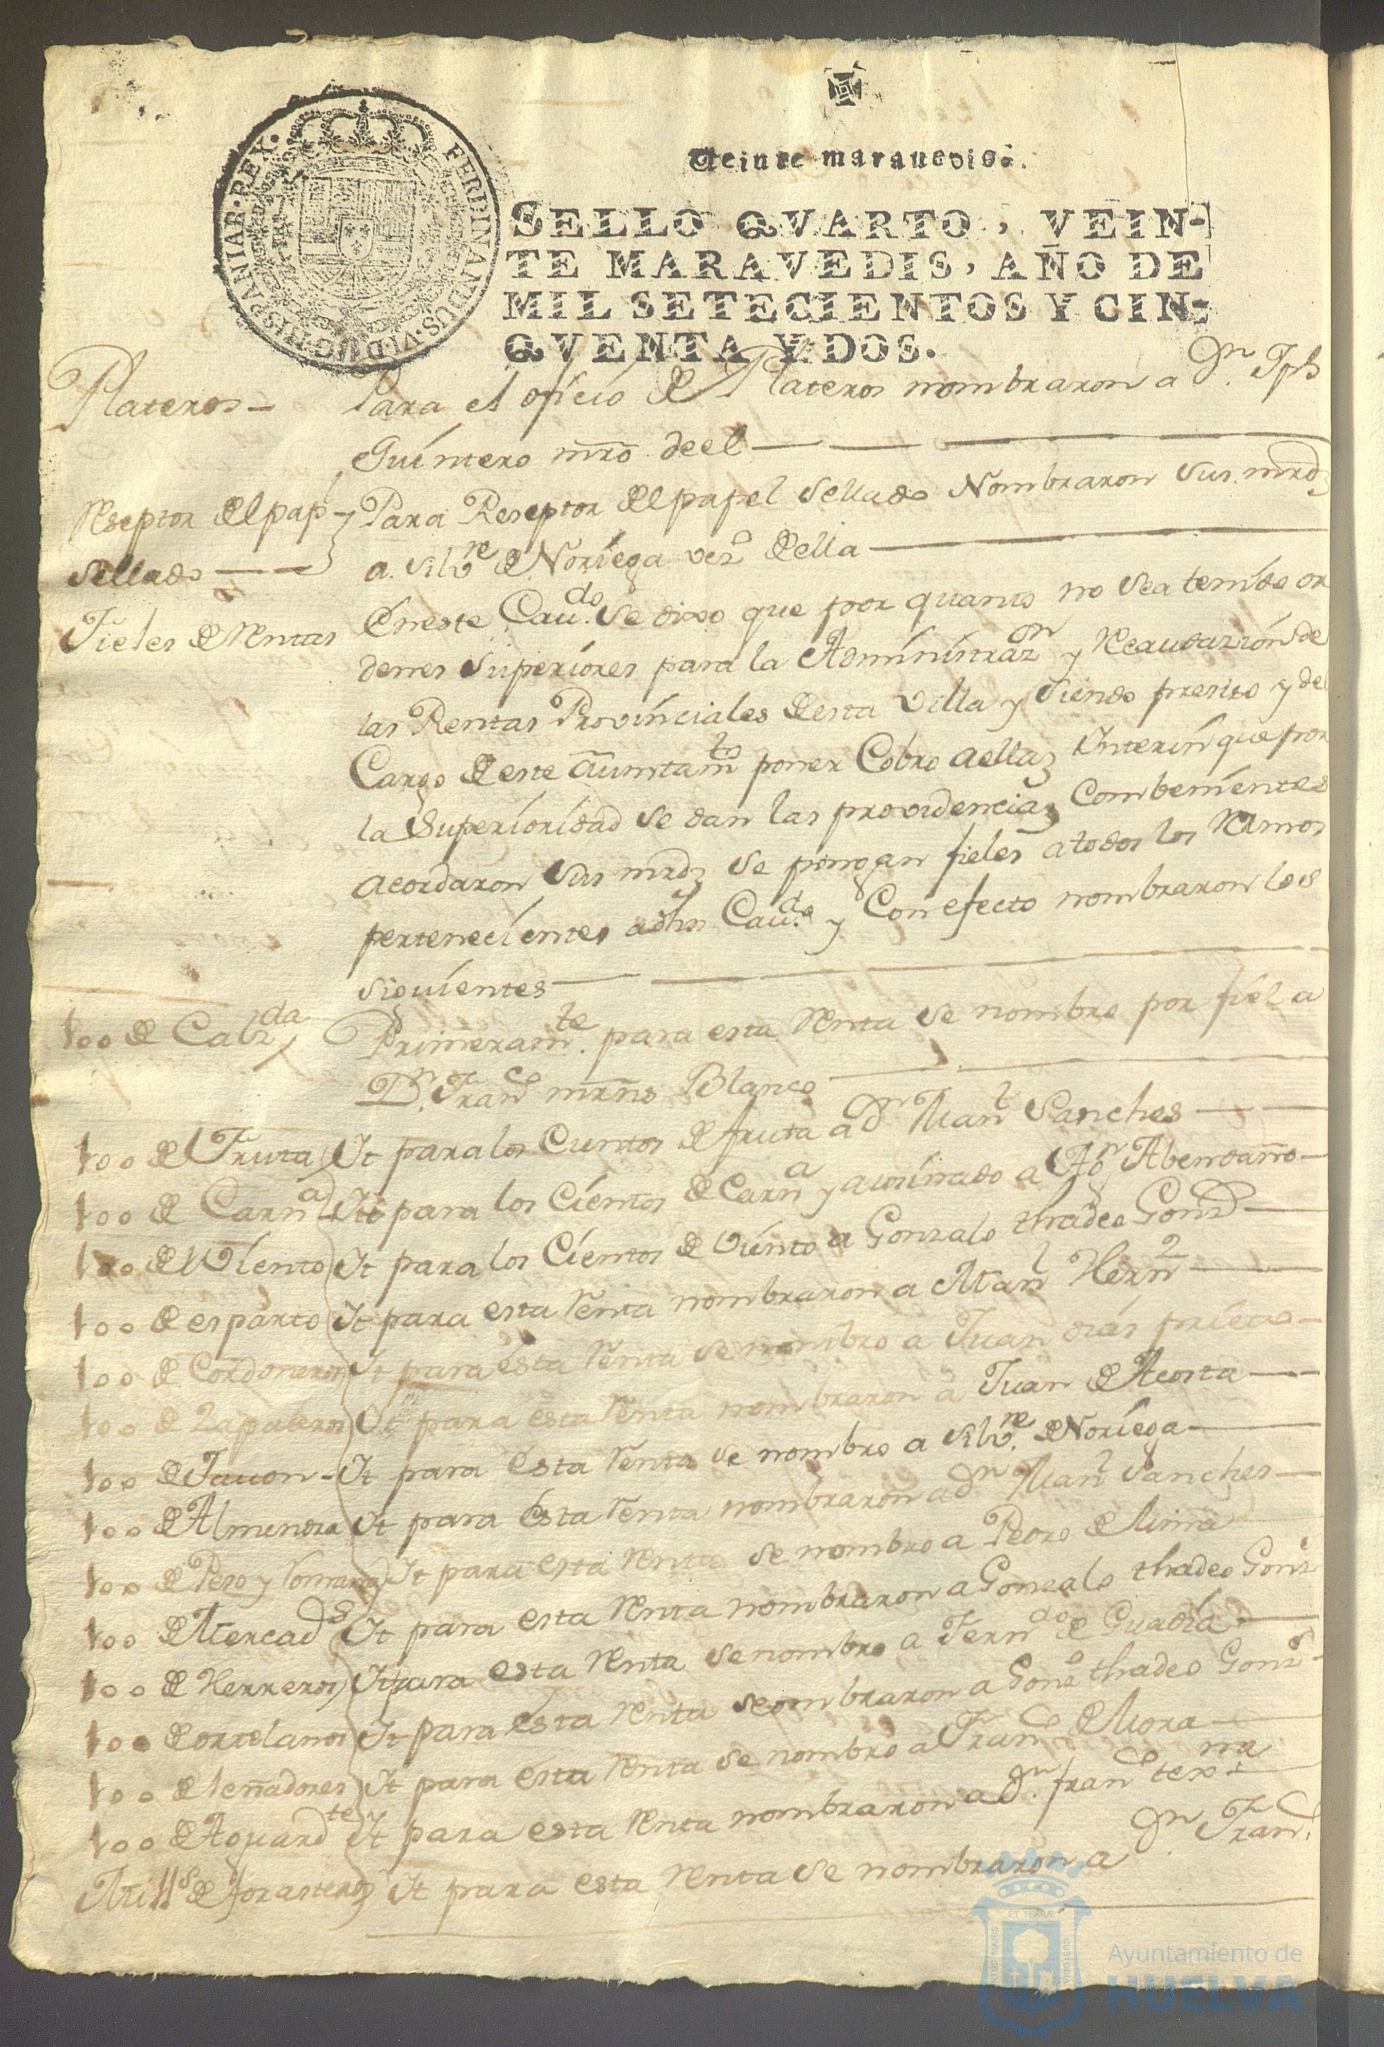 Veinte maravedis.
FERDINANDUS·VI·D·G·HISPANIAR·REX·
SELLO QVARTO, VEIN-
TE MARAVEDIS, AÑO DE
MIL SETECIENTOS Y CIN-
QVENTA Y DOS.
Plateros - Para el oficio de Plateros nombraron a Dn. Jph
Quintero mro. de el
Reseptor del pap. Para Reseptor del papel sellado Nombraron sus mrds
sellado a Silvre de Noriega vezo della
Fieles de Rentas En este Cavdo. se dixo que por quanto no sea tenido or
denes superiores para la Administrazn y Recaudazión de
las Rentas Provinciales desta Villa y siendo presiso y del
Cargo de este Aiuntamto poner Cobro a ellas Ynterin que por
la Superioridad se dan las providencias combenientes
acordaron sus mrds se pongan fieles a todos los Ramos
pertenecientes a dho Cavdo y Con efecto nombraron los
siguientes
100 de Calzda Primeramte. para esta Renta se nombro por fiel a
Dn. Franco mrns Blanco
100 de Fruta It para los Cientos de fruta a Dn Manl Sanches
100 de Carna It para los Cientos de Carna y a Agn Abendaño
100 de Viento It para los Cientos de Viento a Gonzalo thadeo Gonz
100 de esparto It para esta Renta nombraron a Manl Hernz
100 de Cordoneros It para esta Renta se nombro a Juan dias prieto
100 de Zapateros It para esta Renta nombraron a Juan de Acosta
100 de Javon - It para esta Renta se nombro a Silvre. de Noriega
100 de Almendra It para esta Renta nombraron a Dn Manl Sanches
100 de Peso y Romana It para esta Renta se nombro a Pedro de
100 de Mercads It para esta Renta nombraron a Gonzalo thadeo Gonz
100 de Herreros It para esta Renta se nombro a Ferndo de Guadla
100 de ortelanos It para esta Renta seombraron a Gono thadeo Gonz
100 de leñadores It para esta Renta se nombro a Franco de Mora
100 de Aguardte It para esta Renta nombraron a Dn. franco
Mills de forasteros It para esta Renta se nombraron a Dn Franco
Ayuntamiento de
HUELVA